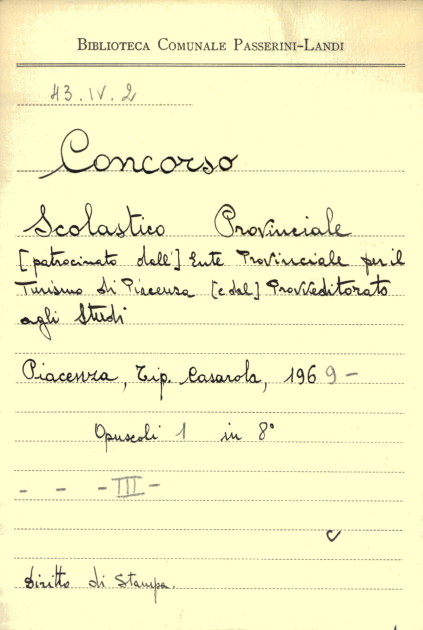 BIBLIOTECA COMUNALE PASSERINI-LANDI
43.IV.2
Concorso
Scolastico Provinciale
[patrocinato dall'] Ente Provinciale per il
Turismo di Piacenza [e dal] Provveditorato
agli Studi
Piacenza, Tip. Casarola, 1969-
Opuscoli 1 in 8°
- - -III-
c
Diritto di Stampa.